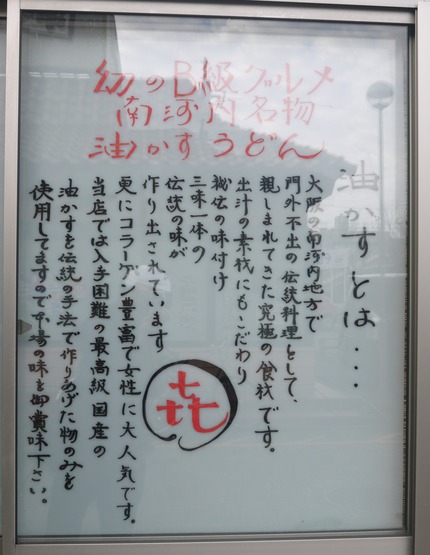 幻のB級グルメ
南河内名物
油かすうどん
油かすとは・・・
大阪の南河内地方で
門外不出の伝統料理として、
親しまれてきた究極の食材です。
出汁の素材にもこだわり
秘伝の味付け
三味一体の
伝統の味が
作り出されています
更にコラーゲン豊富で女性に大人気です。
当店では入手困難の最高級国産の
油かすを伝統の手法で作りあげた物のみを
使用してますので本場の味を御賞味下さい。
㐂